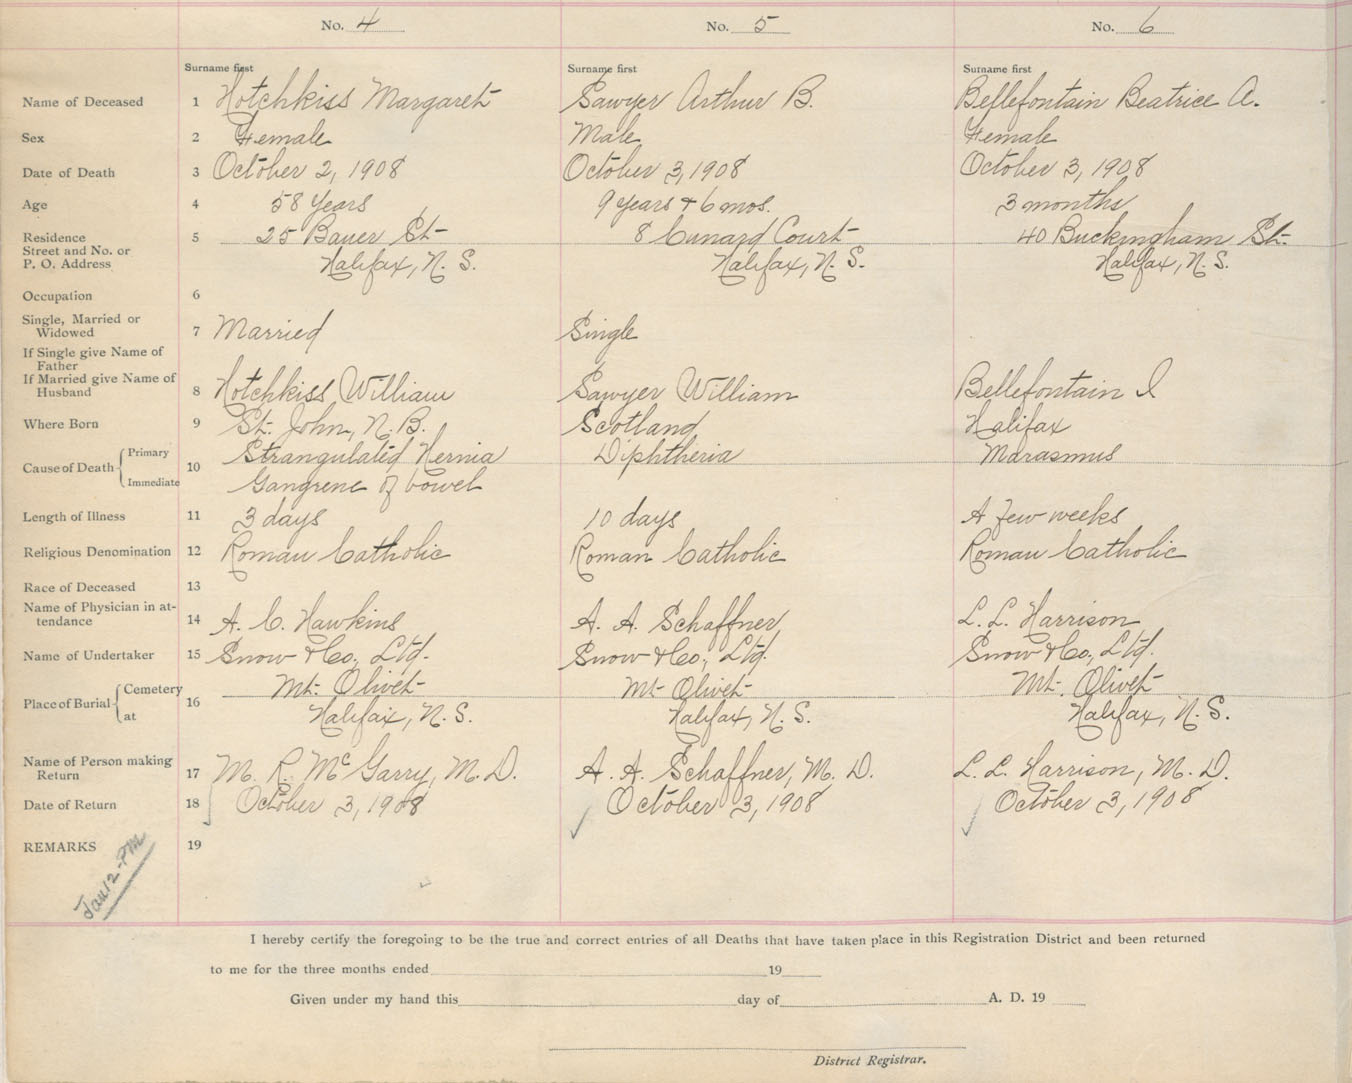 No. 4 No. 5 No. 6
Surname first Surname first Surname first
Name of Deceased 1 Hotchkiss Margaret Sawyer Arthur B. Bellefontain Beatrice A.
Sex 2 Female Male Female
Date of Death 3 October 2, 1908 October 3, 1908 October 3, 1908
Age 4 58 Years 9 years & 6 mos. 3 months
Residence 5 25 Bauer St 8 Cunard Court 40 Buckingham St.
Street and No. or
P. O. Address Halifax, N. S. Halifax, N. S. Halifax, N. S.
Occupation 6
Single, Married or
Widowed 7 Married Single
If Single give Name of
Father
If Married give Name of
Husband 8 Hotchkiss, William Sawyer William Bellefontain I
Where Born 9 St. John, N. B. Scotland Halifax
Cause of Death Primary 10 Strangulated Hernia Diphtheria Marasmus
Immediate Gangrene of bowel
Length of Illness 11 3 days 10 days A few weeks
Religious Denomination 12 Roman Catholic Roman Catholic Roman Catholic
Race of Deceased 13
Name of Physician in at-
tendance 14 A. C. Hawkins A. A. Schaffner L. L. Harrison
Name of Undertaker 15 Snow & Co., Ltd. Snow & Co., Ltd. Snow & Co., Ltd.
Place of Burial Cemetery 16 Mt. Olivet Mt Olivet Mt. Olivet
at Halifax, N. S. Halifax, N. S. Halifax, N. S.
Name of Person making
Return 17 M. R. McGarry, M. D. A. A. Schaffner, M. D. L. L. Harrison, M. D.
Date of Return 18 October 3, 1908 October 3, 1908 October 3, 1908
REMARKS 19
Jan 12 - PM
I hereby certify the foregoing to be the true and correct entries of all Deaths that have taken place in this Registration District and been returned
to me for the three months ended 19
Given under my hand this day of A. D. 19
District Registrar.